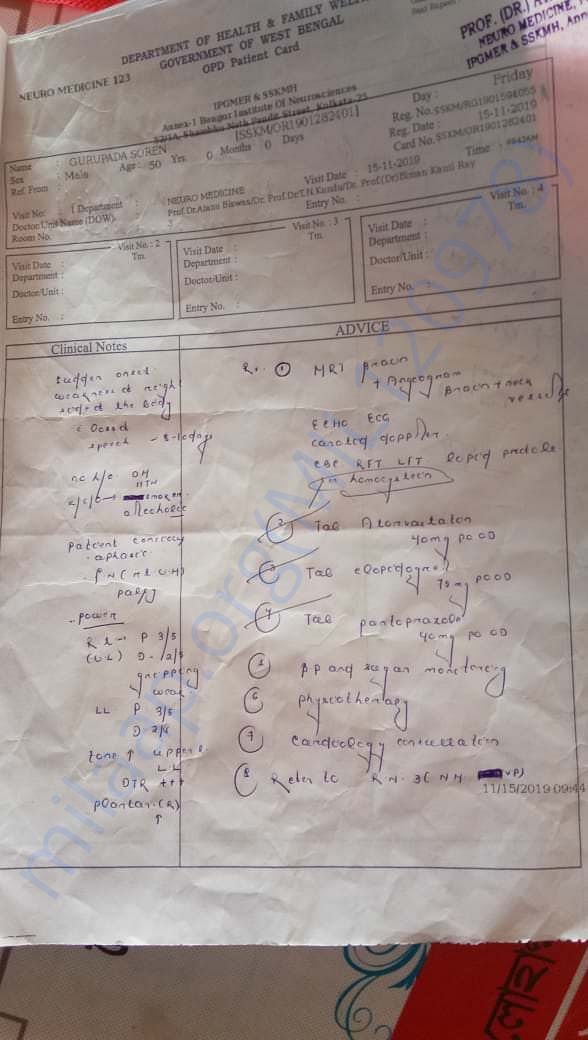 DEPARTMENT OF HEALTH & FAMILY WEL
GOVERNMENT OF WEST BENGAL
OPD Patient Card
NEURO MEDICINE 123
PROF. (DR.)
NEURO MEDICINE,
IPGMER & SSKMH,
IPGMER & SSKMH
Annex-1 Bangur Institute Of Neurosciences
52/1A, Shambhu Nath Pandit Street, Kolkata-25
[SSKM/OR1901282401]
Name : GURUPADA SOREN
Sex : Male Age : 50 Yrs 0 Months 0 Days
Ref. From :
Day : Friday
Reg. No. SSKM/RG1901594055
Reg. Date : 15-11-2019
Card No. SSKM/OR1901282401
Visit No. 1 Department : NEURO MEDICINE Visit Date : 15-11-2019 Time :
Doctor/Unit Name (DOW) : Prof.Dr.Atanu Biswas/Dr. Prof.Dr.T.N.Kundu/Dr. Prof.(Dr)Biman Kanti Ray
Room No. : 3 Entry No. :
Visit No. : 2
Tm.
Visit Date :
Department :
Doctor/Unit :
Entry No. :
Visit No. : 3
Tm.
Visit Date :
Department :
Doctor/Unit :
Entry No. :
Visit No. : 4
Tm.
Visit Date :
Department :
Doctor/Unit :
Entry No. :
Clinical Notes
ADVICE
Sudden onset
weakness of right
sided the body
speech
no h/o DM
HTN
Patient conscious
aphasic
palsy
Power
P 3/5
(UL) D 2/5
gripping
weak
LL P 3/5
D
tone ↑ upper &
LL
DTR +++
Plantar (R)
↑
① MRI Brain
+ Angiogram
Brain + neck
vessels
ECHO ECG
carotid doppler
CBC RFT LFT lipid profile
homocystein
② Tab Atorvastatin
40mg PO OD
③ Tab clopidogrel
75mg PO OD
④ Tab pantoprazole
40mg PO OD
⑤ BP and sugar monitoring
⑥ physiotherapy
⑦ Cardiology consultation
⑧ Refer to
11/15/2019 09:44
milaap.org(MIL120978)
লোহা